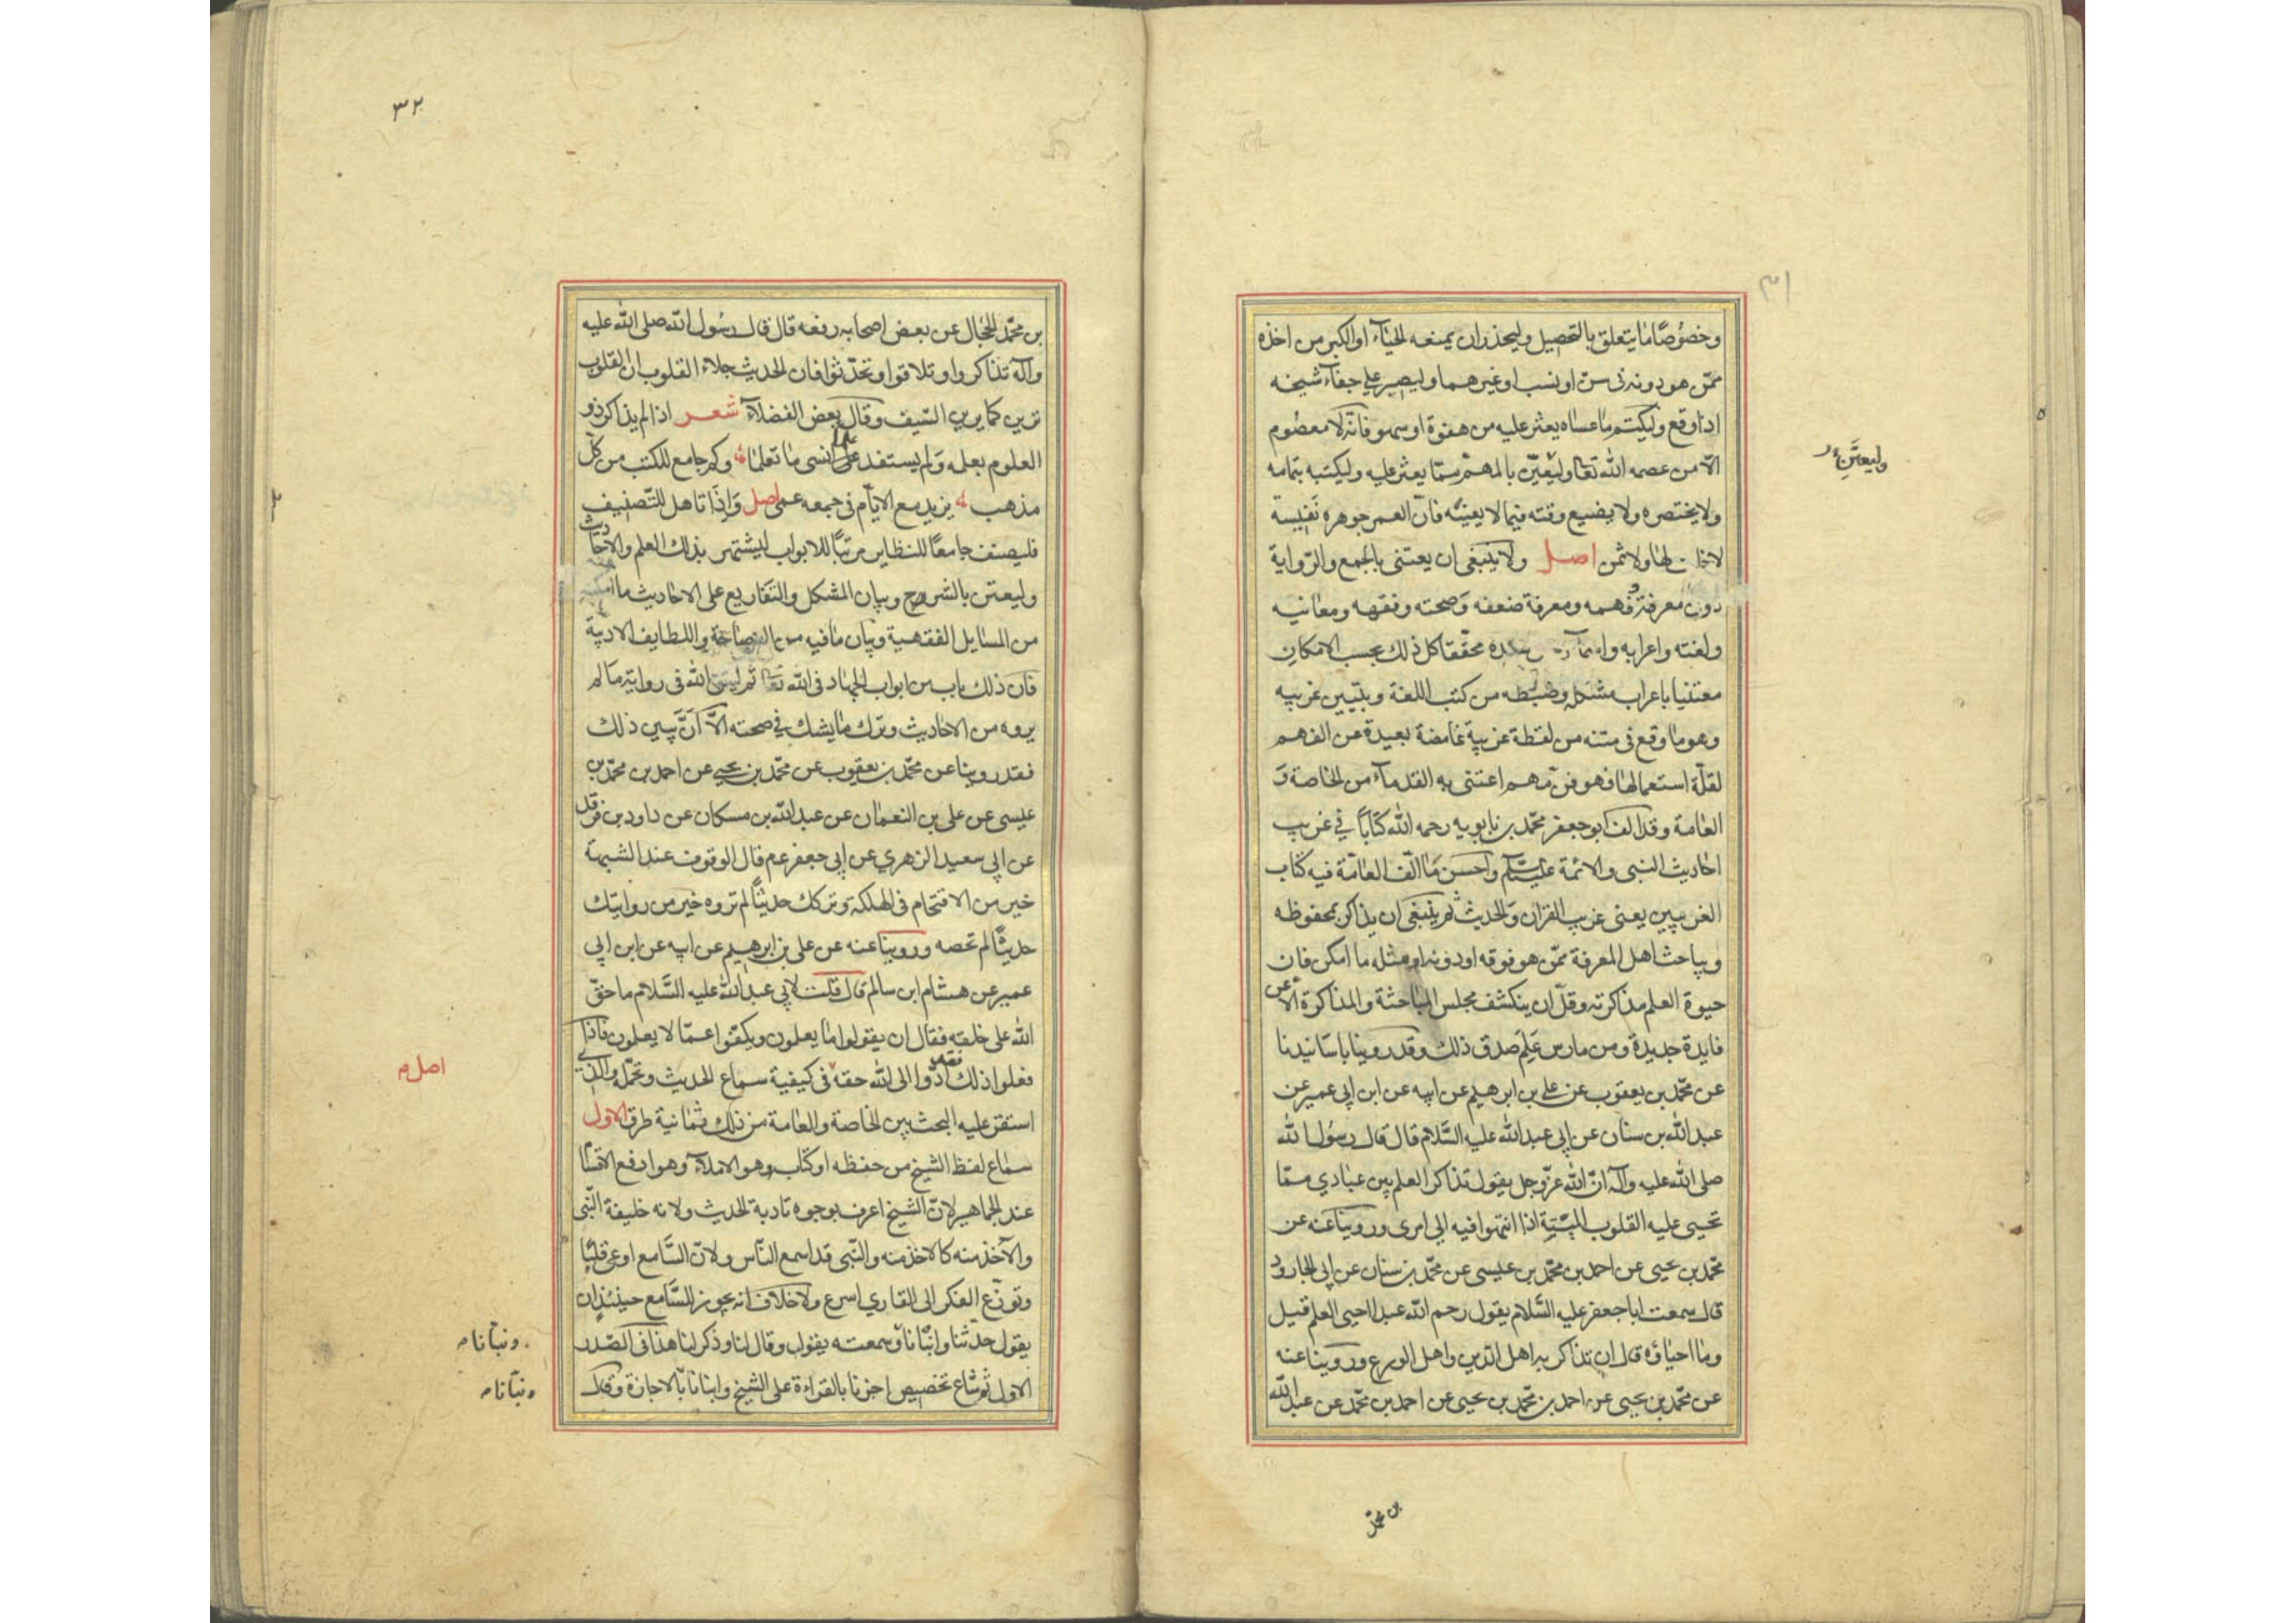 ٣١
وخصوصًا ما يتعلق بالتحصيل وليحذر ان يمنعه الحيآء او الكبر من اخذه
ممّن هو دونه فى سنّ او نسب او غيرهما وليصبر علي جفآء شيخه
اذا وقع وليكتم ما عساه يعثر عليه من هفوة او سهو فانّه لا معصوم
الّا من عصمه الله تعا وليعتن بالمهمّ ممّا يعثر عليه وليكتبه بتمامه
وليعتنِ
ولا يختصره ولا يضيع وقته فيما لا يعنيه فانّ العمر جوهرة نفيسة
لها ولا ثمن اصل ولا ينبغى ان يعتنى بالجمع والرّواية
دون معرفة وفهمه ومعرفة ضعفه وصحته وفقهه ومعانيه
ولغته واعرابه محقّقا كل ذلك بحسب الامكان
معتنيا باعراب مشكله وضبطه من كتب اللغة وتبيين غريبه
وهو ما وقع فى متنه من لفظة غريبة غامضة بعيدة عن الفهم
لقلّة استعمالها فهو فنّ مهم اعتنى به القدمآء من الخاصة و
العامة وقد الف ابو جعفر محمّد بن بابويه رحمه الله كتابًا في غريب
احاديث النبى والائمة عليهم السّلام واحسن ما الّف العامّة فيه كتاب
الغريبين يعنى غريب القران والحديث ثم ينبغى ان يذاكر بمحفوظه
ويباحث اهل المعرفة ممّن هو فوقه او دونه او مثله ما امكن فان
حيوة العلم مذاكرته وقلّ ان ينكشف مجلس المباحثة والمذاكرة الّا عن
فايدة جديدة ومن مارس عَلِمَ صدق ذلك وقد روينا باسانيدنا
عن محمّد بن يعقوب عن علي بن ابرهيم عن ابيه عن ابن ابى عمير عن
عبد الله بن سنان عن ابى عبد الله عليه السّلام قال قال رسول الله
صلى الله عليه وآله انّ الله عزّ وجل يقول تذاكر العلم بين عبادي ممّا
تحيى عليه القلوب الميّتة اذا انتهوا فيه الى امرى وروينا عنه عن
محمّد بن يحيى عن احمد بن محمّد بن عيسى عن محمّد بن سنان عن ابى الجارود
قال سمعت ابا جعفر عليه السّلام يقول رحم الله عبدا احيى العلم قيل
وما احياؤه قال ان تذاكر به اهل الدين واهل الورع وروينا عنه
عن محمّد بن يحيى عن احمد بن محمّد بن يحيى عن احمد بن محمّد عن عبد الله
بن محمّد
٣٢
بن محمّد الحجال عن بعض اصحابه رفعه قال قال رسول الله صلى الله عليه
وآله تذاكروا وتلاقوا وتحدّثوا فان الحديث جلاء القلوب ان القلوب
ترين كما يرين السّيف وقال بعض الفضلآء شعر اذا لم يذاكر ذو
العلوم بعلمه ولم يستفد علما نسى ما تعلما وكم جامع للكتب من كلّ
مذهب يزيد مع الايّام فى جمعه عمى اصل واذا تاهل للتّصنيف
فليصنف جامعًا للنظاير مرتّبًا للابواب ليشتهر بذلك العلم والاحاديث
وليعتن بالشروح وبيان المشكل والتفاريع على الاحاديث ما امكنه
من المسايل الفقهية وبيان ما فيه من الفصاحة واللطايف الادبيّة
فانّ ذلك باب من ابواب الجهاد فى الله تعا ثم ليتق الله فى رواية ما لم
يروه من الاحاديث وترك ما يشك في صحته الّا ان يبين ذلك
فقد روينا عن محمّد بن يعقوب عن محمّد بن يحيى عن احمد بن محمّد بن
عيسى عن على بن النعمان عن عبد الله بن مسكان عن داود بن فرقد
عن ابى سعيد الزهري عن ابى جعفر عم قال الوقوف عند الشبهة
خير من الاقتحام فى الهلكة وتركك حديثًا لم تروه خير من روايتك
حديثًا لم تحصه وروينا عنه عن على بن ابرهيم عن ابيه عن ابن ابى
عمير عن هشام ابن سالم قال قلت لابى عبد الله عليه السّلام ما حقّ
الله على خلقه فقال ان يقولوا ما يعلمون ويكفّوا عمّا لا يعلمون فاذا
اصل م
فعلوا ذلك فقد ادّوا الى الله حقه فى كيفية سماع الحديث وتحمّله والذي
استقرّ عليه البحث بين الخاصة والعامة من ذلك ثمانية طرق الاول
سماع لفظ الشيخ من حفظه او كتاب وهو الاملآء وهو ارفع الاقسام
عند الجماهير لانّ الشيخ اعرف بوجوه تادية الحديث ولانه خليفة النّبى
والآخذ منه كالاخذ منه والنّبى قد اسمع النّاس ولانّ السّامع اوعى قلبًا
وتوزّع الفكر الى القاري اسرع ولا خلاف انه يجوز للسّامع حينئذ ان
يقول حدّثنا وانبانا وسمعته يقول وقال لنا وذكر لنا هذا فى الصّدر
ونبّانا م
الاول ثم شاع تخصيص اخبرنا بالقراءة على الشيخ وانبانا بالاجازة وقال
ونبّانا م